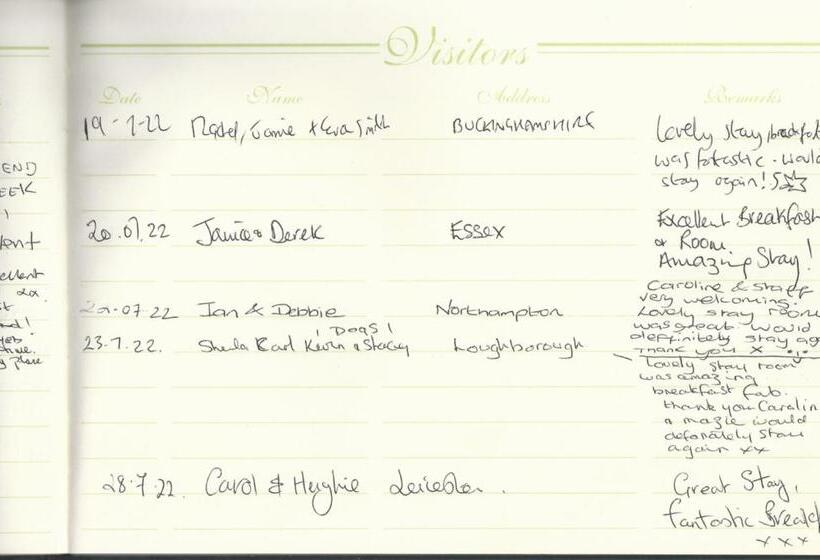 Visitors
Date Name Address Remarks
19-7-22 Jamie + Eva Smith BUCKINGHAMSHIRE Lovely stay, breakfast
was fatastic. would
stay again! 5☆
20.07.22 Janice & Derek ESSEX Excellent Breakfast
& Room.
Amazing Stay!
07.22 Ian & Debbie Northampton Caroline & staff
very welcoming.
Lovely stay room
was great would
deffinitely stay ag
Thank you x
! DOGS !
23.7.22. Sheila Karl Kevin & Stacey Loughborough Lovely stay room
was amazing
breakfast fab.
thank you Carolin
a mazie would
defonately stay
again xx
28.7.22. Carol & Hughie Leicester. Great Stay,
fantastic Breakf
x x x
END
EEK
!
ent
ellent
xx
st
nd!